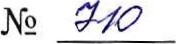 № 710